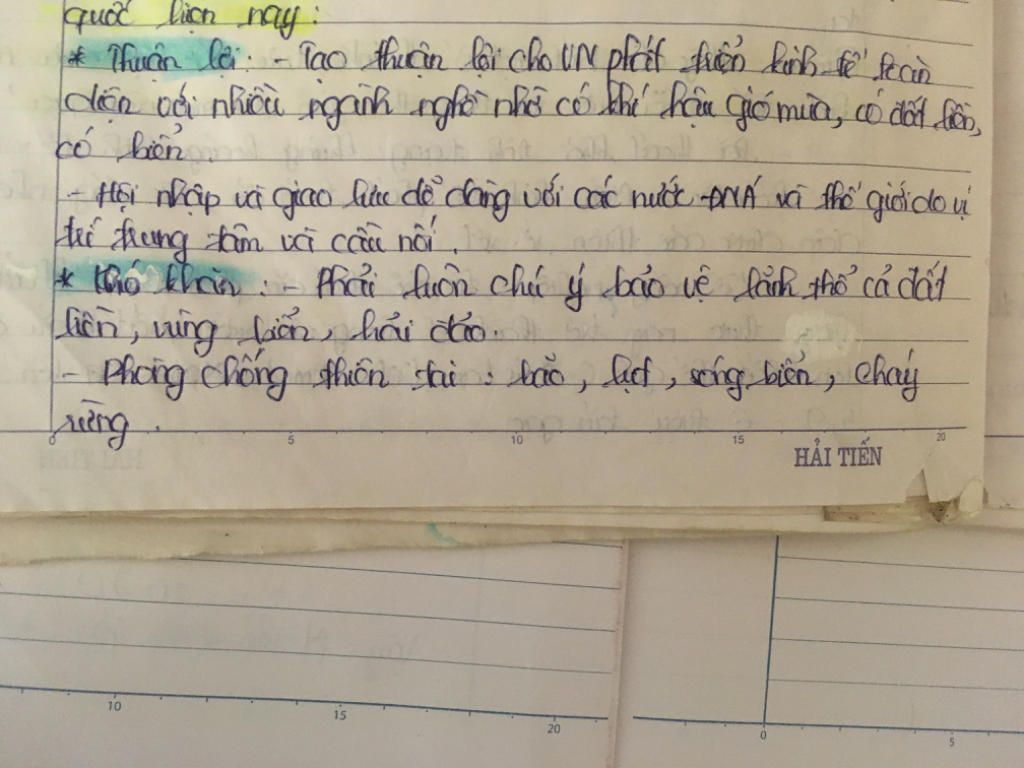 quốc hiện nay:
* Thuận lợi: - Tạo thuận lợi cho VN phát triển kinh tế toàn
diện với nhiều ngành nghề nhờ có khí hậu gió mùa, có đất liền,
có biển.
- Hội nhập và giao lưu dễ dàng với các nước ĐNÁ và thế giới do vị
trí trung tâm và cầu nối.
* Khó khăn: - Phải luôn chú ý bảo vệ lãnh thổ cả đất
liền, vùng biển, hải đảo.
- Phòng chống thiên tai: bão, lụt, sóng biển, cháy
rừng.
0 5 10 15 20
HẢI TIẾN
10 15 20
0 5